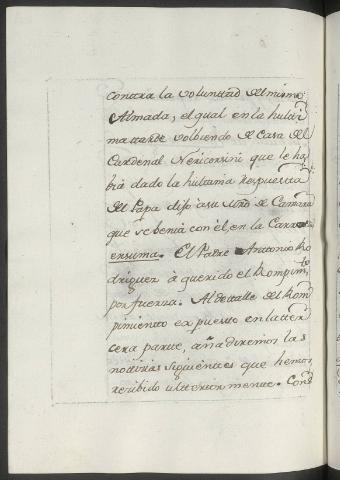 contra la voluntad del mismo
Almada, el qual en la hulti
ma tarde volbiendo de Casa del
Cardenal Nericorsini que le ha
bia dado la hultima Respuesta
del Papa dijo asu de Camara
que se benia con él, en la Carro
ensuma. El Padre Antonio Ro
driguez à querido el Rompim.to
por fuerza. Al detalle del Rom
pimiento expuesto en la ter
cera parte, añadiremos las
noticias siguientes que hemos
recibido ulteriormente. Cons